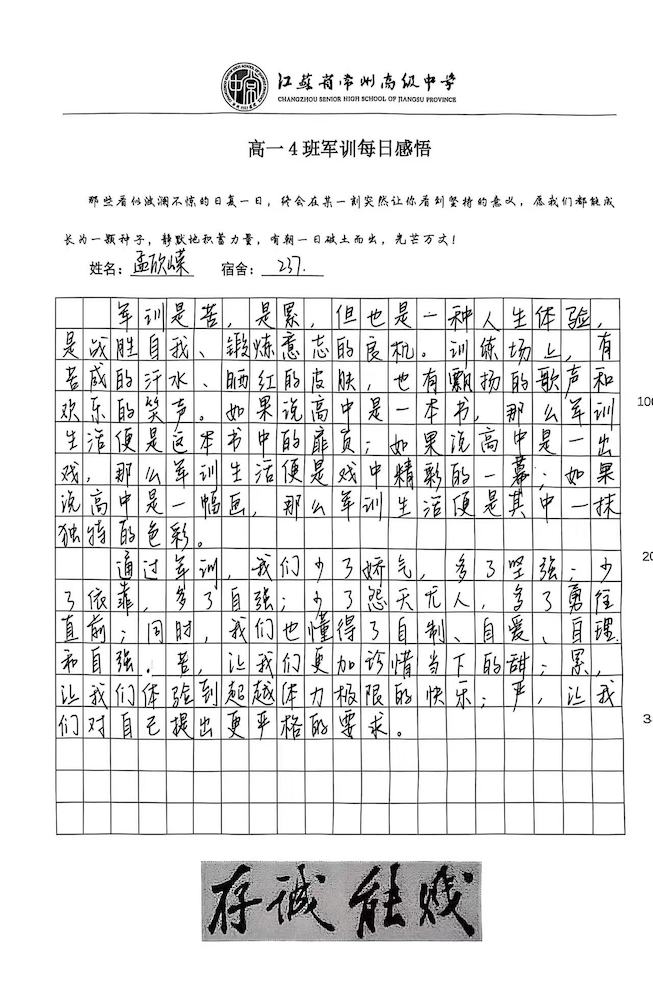 江苏省常州高级中学
CHANGZHOU SENIOR HIGH SCHOOL OF JIANGSU PROVINCE
高一4班军训每日感悟
那些看似波澜不惊的日复一日，终会在某一刻突然让你看到坚持的意义，愿我们都能成
长为一颗种子，静默地积蓄力量，有朝一日破土而出，光芒万丈！
姓名：孟欣嵘 宿舍：237.
军训是苦，是累，但也是一种人生体验，
是战胜自我、锻炼意志的良机。训练场上，有
苦咸的汗水、晒红的皮肤，也有飘扬的歌声和
欢乐的笑声。如果说高中是一本书，那么军训
100
生活便是这本书中的扉页；如果说高中是一出
戏，那么军训生活便是戏中精彩的一幕；如果
说高中是一幅画，那么军训生活便是其中一抹
独特的色彩。
20
通过军训，我们少了娇气，多了坚强；少
了依靠，多了自强；少了怨天尤人，多了勇往
直前；同时，我们也懂得了自制、自爱、自理
和自强。苦，让我们更加珍惜当下的甜；累，
让我们体验到超越体力极限的快乐；严，让我
们对自己提出更严格的要求。
3
存诚能贱